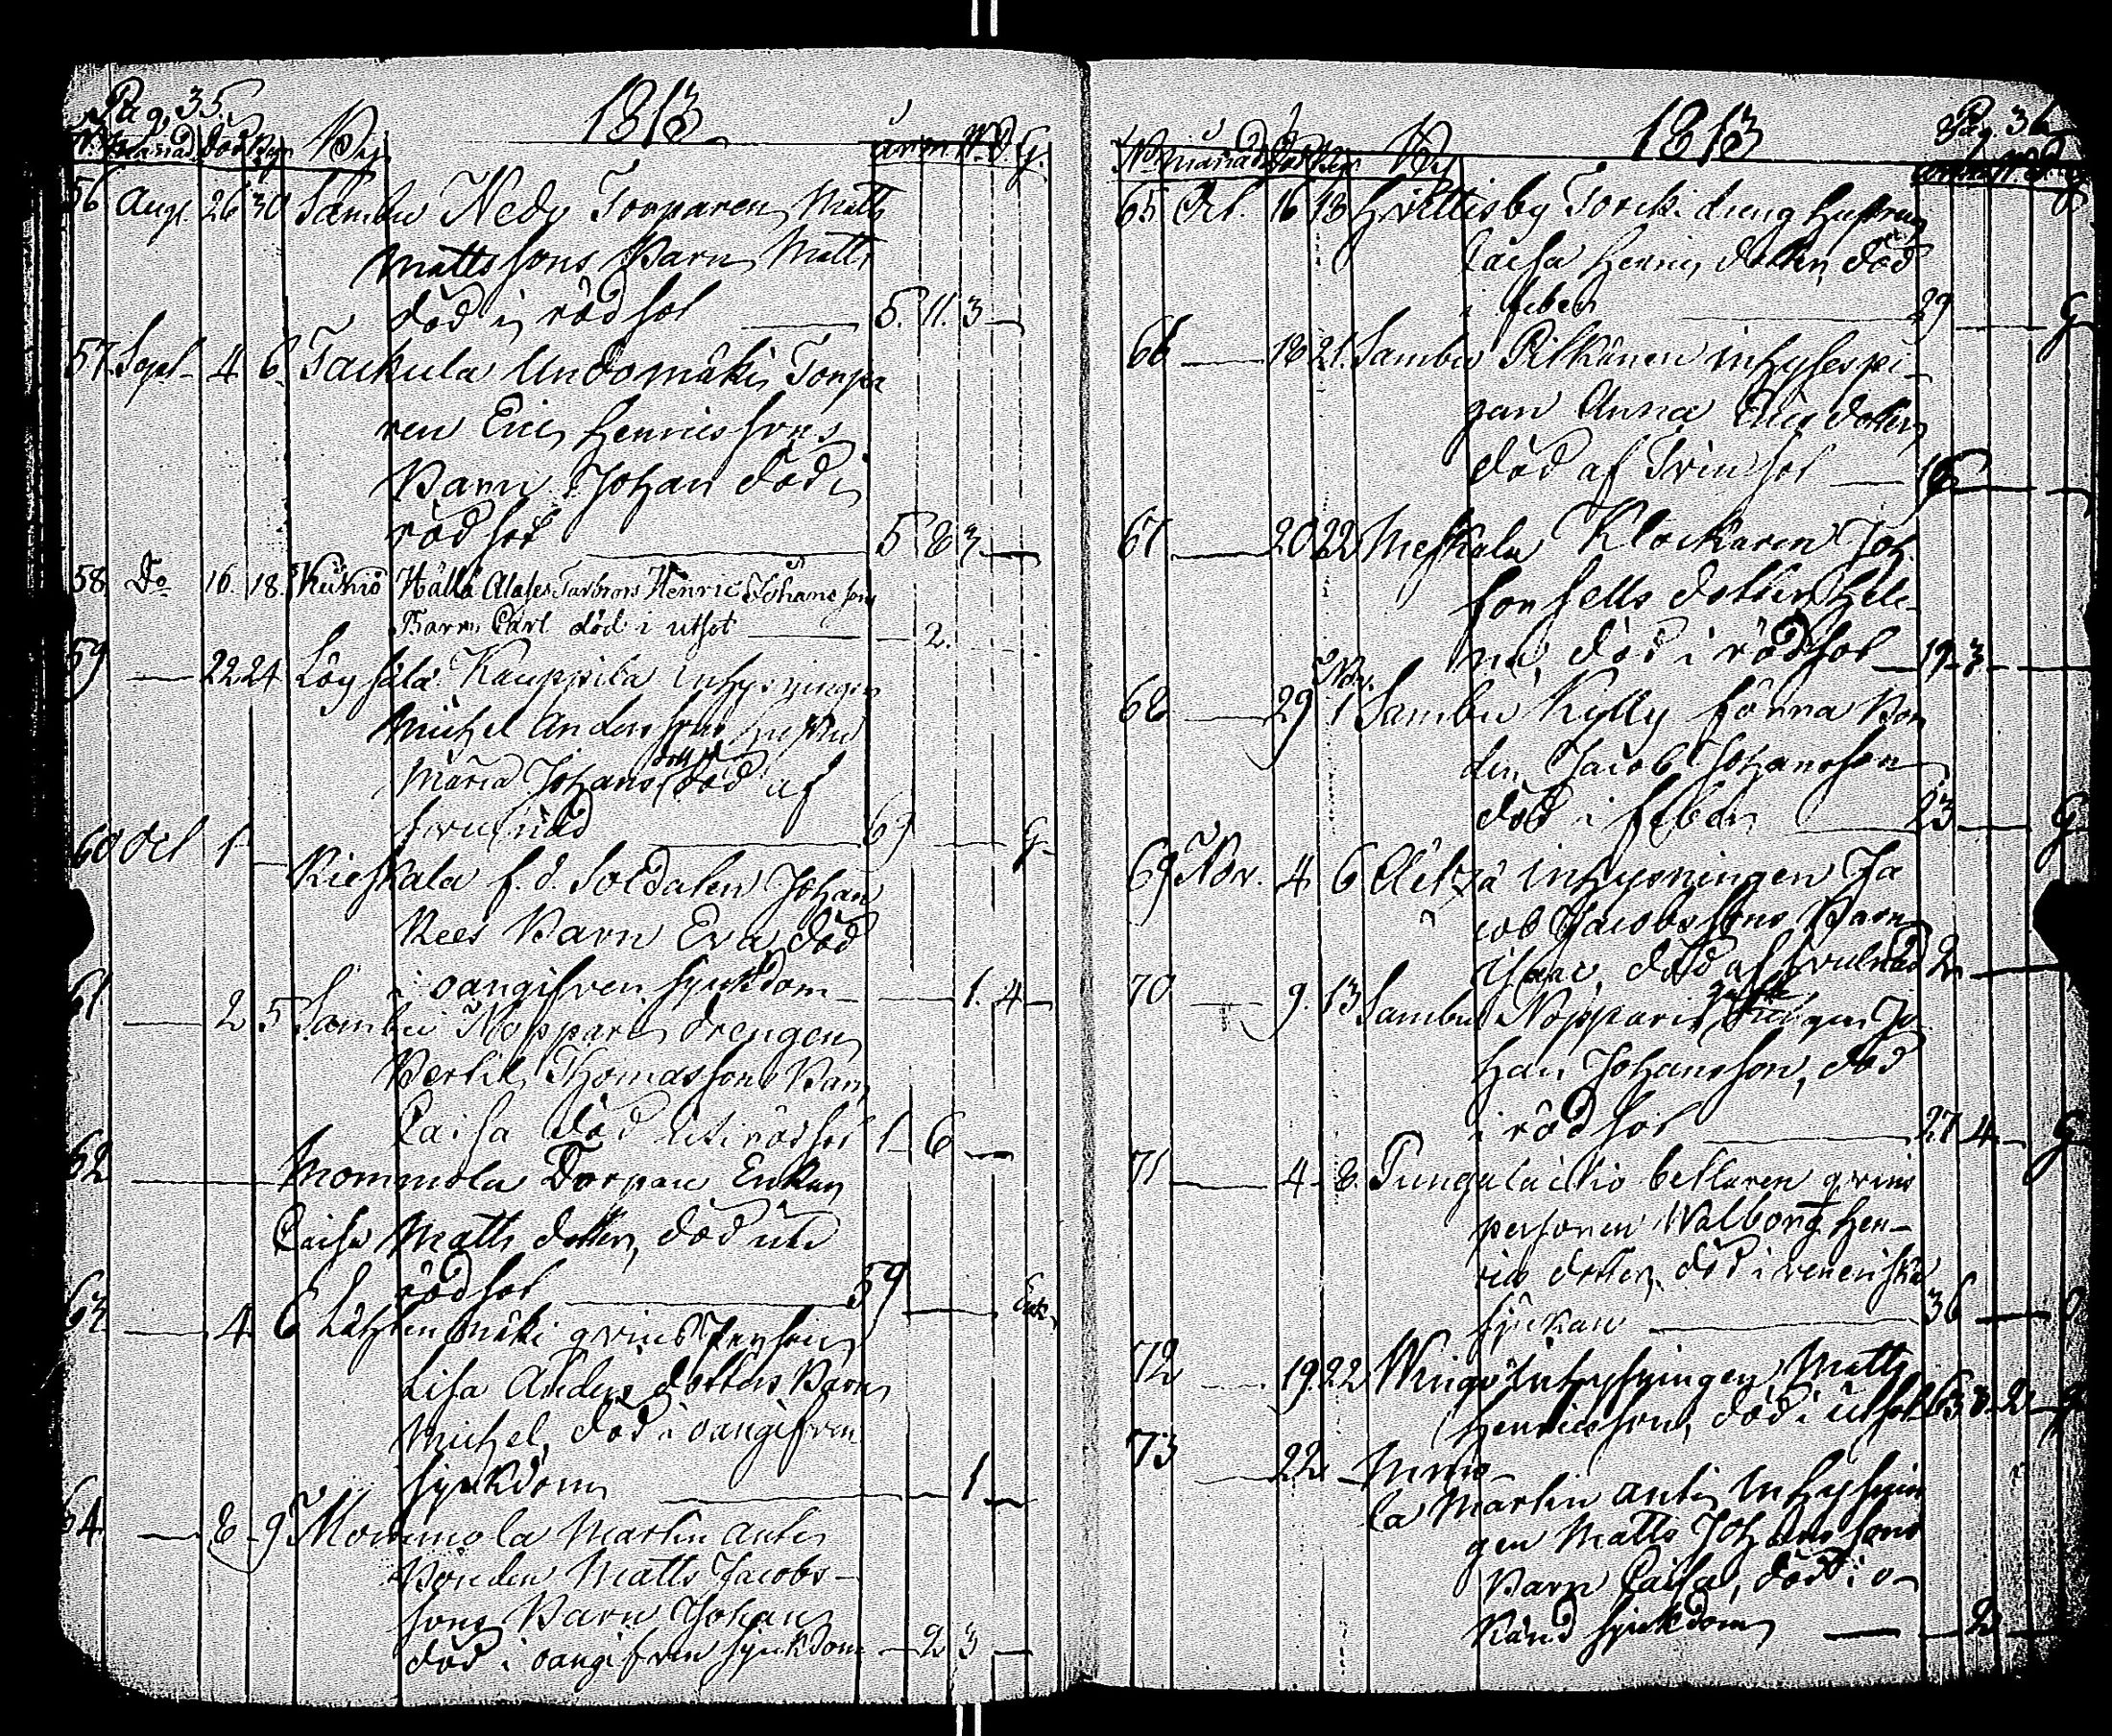 Pag. 35. 1813
N. månad död beg By år m. v. d. g.
56 Aug. 26 30 Sambu Nedy Torparen Matts
Mattssons Barn Matts
död i rödsot 5. 11. 3
57 Sept 4 6 Tackula Undomäki Torpa
ren Eric Henricssons
Barn Johan död i
rödsot 5 8 3
58 Do 16. 18. Kiimo Hälla Henric Johans sons
Barn Carl död i utsot 2.
59 22 24 Kauppila inhysningen
Michel Anderssons hustru
Maria Johans dotter död af
69 g.
60 Oct 1 f. d. Soldaten Johan
Barn Eva, död
i oangifven sjukdom 1. 4
61 2 5 Sambu Noppari drengen
Bertil Thomassons Barn
Caisa död uti rödsot 1 6
62 Mommola Torpare Enkan
Caisa Matts dotter, död uti
rödsot 59 Enk.
63 4 6 qvins Person
Lisa Anders dotters Barn
Michel, död i oangifven
sjukdom 1
64 8 9 Mommola Martin anti
Bonden Matts Jacobs-
sons Barn Johan
död i oangifven sjukdom 2 3
1813 Pag. 36
N månad död beg By
65 Oct. 16 18 Hvittisby Torcki dreng hustrun
Caisa Henric dotter, död
i feber 29 g
66 18 21. Sambu Pilkänen inhysespi-
gan Anna Eric dotter
död af
67 20 22 Meskala Klockaren Joh.
Forsells dotter Hele-
na, död i rödsot 19 3
68 29 Nov. 1 Sambu Kylly förra Bon
den Jacob Johansson
död i feber 23 g
69 Nov. 4 6 inhysningen Ja
cob Jacobssons Barn
Isaac, död af 2
70 9. 13 Sambu Noppari Jo
han Johansson, död
i rödsot 27 4 g
71 4 8. Pungalaitio betlaren qvins
personen Walborg Hen-
rics dotter död i veneriska
sjukan 36 g
72 19 22 inhysningen Matts
Henricsson, död i utsot 63 8 2 g
73 22 Mmo-
la Martin anti inhysnin
gen Matts Johanssons
Barn Caisa, död i o-
känd sjukdom 2